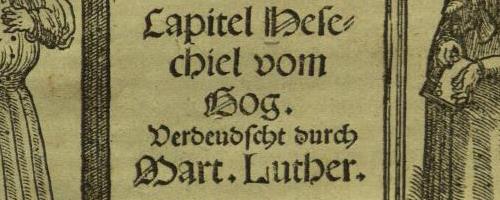 Capitel Hese⸗
chiel vom
Gog.
Verdeudscht durch
Mart. Luther.